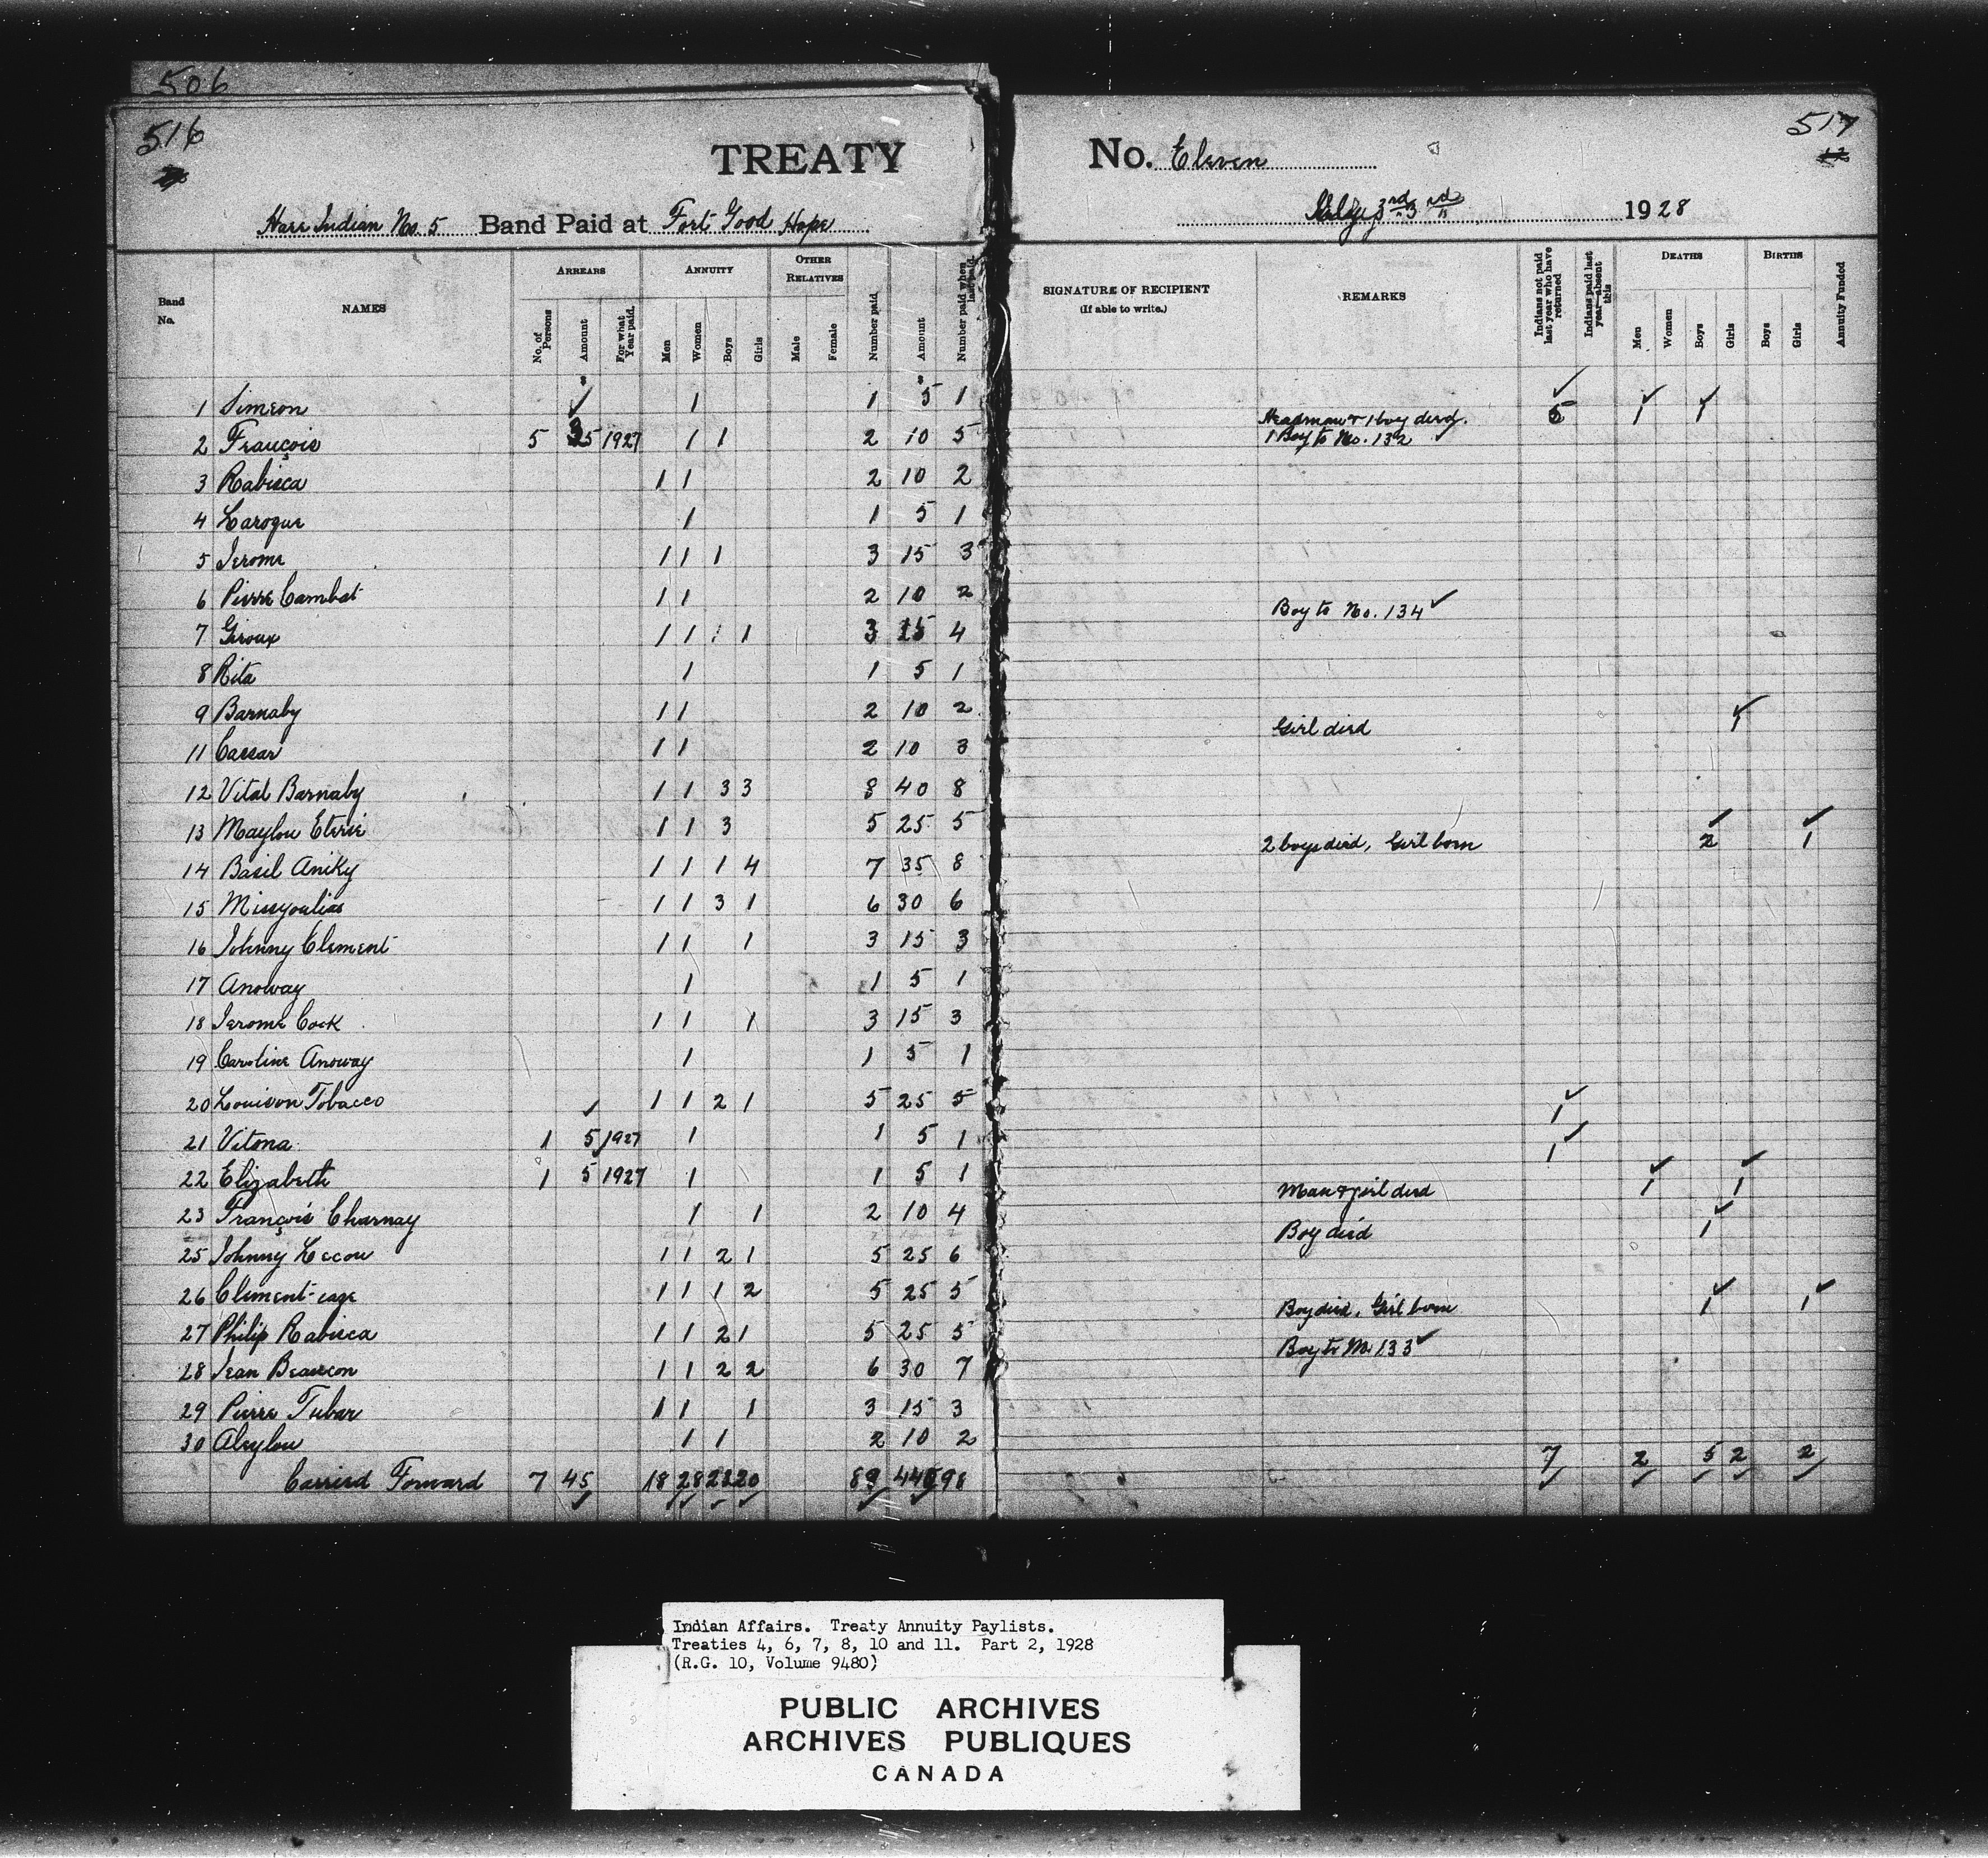 506
516
517
TREATY No. Eleven
Hare Indian No. 5 Band Paid at Fort Good Hope July 3rd 1928
Band No. NAMES ARREARS ANNUITY OTHER RELATIVES Number paid Amount Number paid when last paid. SIGNATURE OF RECIPIENT (If able to write.) REMARKS Indians not paid last year who have returned Indians paid last year—absent this DEATHS BIRTHS Annuity Funded
No. of Persons Amount For what Year paid. Men Women Boys Girls Male Female Men Women Boys Girls Boys Girls
1 Simeon 1 1 5 1
2 François 5 35 1927 1 1 2 10 5 Headman & 1 boy died. 1 Boy to No. 132 5 1 1
3 Rabisca 1 1 2 10 2
4 Laroque 1 1 5 1
5 Jerome 1 1 1 3 15 3
6 Pierre Cambat 1 1 2 10 2
7 Giroux 1 1 1 3 15 4 Boy to No. 134
8 Rita 1 1 5 1
9 Barnaby 1 1 2 10 2
11 Caesar 1 1 2 10 3 Girl died 1
12 Vital Barnaby 1 1 3 3 8 40 8
13 Maylou Eterie 1 1 3 5 25 5
14 Basil Aniky 1 1 1 4 7 35 8 2 boys died, Girl born 2 1
15 Missyoulias 1 1 3 1 6 30 6
16 Johnny Clement 1 1 1 3 15 3
17 Anoway 1 1 5 1
18 Jerome Cock 1 1 1 3 15 3
19 Caroline Anoway 1 1 5 1
20 Louison Tobacco 1 1 2 1 5 25 5
21 Vitona 1 5 1927 1 1 5 1 1
22 Elizabeth 1 5 1927 1 1 5 1 1
23 François Charnay 1 1 2 10 4 Man & girl died 1 1
25 Johnny Lecou 1 1 2 1 5 25 6 Boy died 1
26 Clement-case 1 1 1 2 5 25 5
27 Philip Rabisca 1 1 2 1 5 25 5 Boy died, Girl born 1 1
28 Jean Beaucon 1 1 2 2 6 30 7 Boy to No. 133
29 Pierre Tubar 1 1 1 3 15 3
30 Alvylou 1 1 2 10 2
Carried Forward 7 45 18 28 23 20 89 445 98 7 2 5 2 2
Indian Affairs. Treaty Annuity Paylists.
Treaties 4, 6, 7, 8, 10 and 11. Part 2, 1928
(R.G. 10, Volume 9480)
PUBLIC ARCHIVES
ARCHIVES PUBLIQUES
CANADA